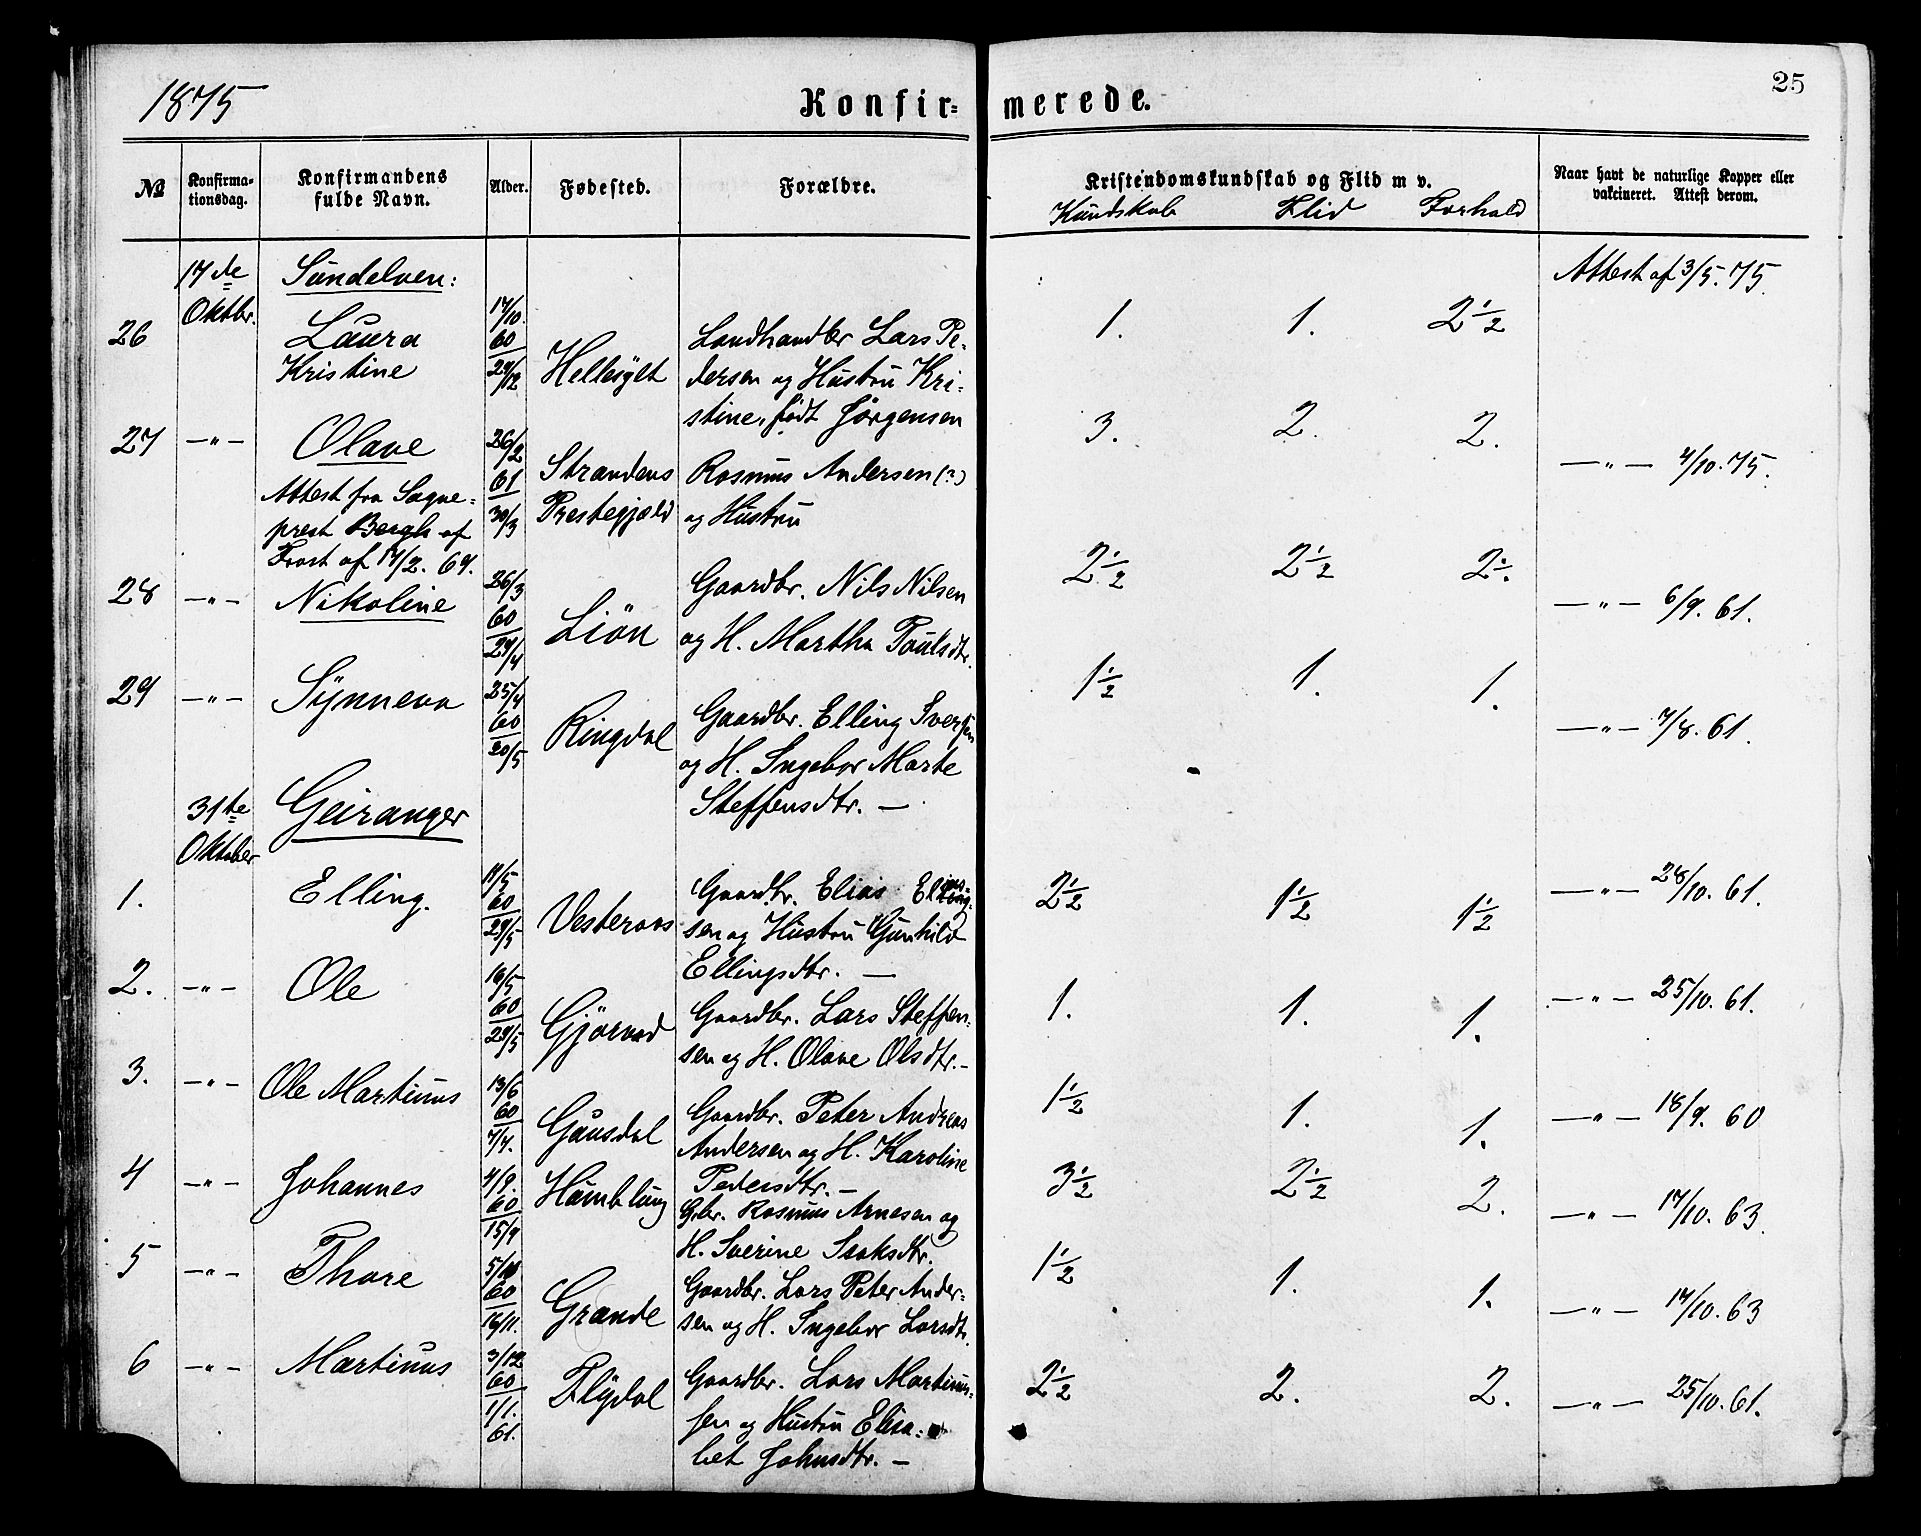 1875
Konfir=
merede.
25
№
Konfirma-
tionsdag.
Konfirmandens
fulde Navn.
Alder.
Fødested.
Forældre.
Kristendomskundskab og Flid m v.
Kundskab Flid Forhold
Naar havt de naturlige Kopper eller
vakcineret. Attest derom.
17de
Oktbr.
Sundelven:
26
Laura
Kristine
17/10.
60
29/12
Hellesylt
Landhandler Lars Pe-
dersen og Hustru Kri-
stine, født Jørgensen
1. 1. 2 1/2
Attest af 3/5.75.
27
—"—
Olave
Attest fra Sogne-
prest Bergh af
17/2. 69.
26/2
61
30/3
Strandens
Prestegjæld
Rasmus Andersen (?)
og Hustru
3. 2. 2.
—"— 4/10.75.
28
—"—
Nikoline
26/3
60
29/4
Liøn
Gaardbr. Nils Nilsen
og H. Martha Poulsdtr.
2 1/2 2 1/2 2
—"— 6/9. 61.
29
—"—
Synneva
25/4
60
20/5
Ringdal
Gaardbr. Elling Iversen
og H. Ingebor Marte
Steffensdtr. —
1 1/2 1. 1.
—"— 7/8. 61.
31te
Oktober
Geiranger
1.
Elling.
11/5
60
29/5
Vesteraas
Gaardbr. Elias
sen og Hustru Gunhild
Ellingsdtr. —
2 1/2 1 1/2 1 1/2
—"— 28/10. 61.
2.
—"—
Ole
19/5
60
29/5
Gjørvad
Gaardbr. Lars Steffen-
sen og H. Olave Olsdtr. -
1. 1. 1.
—"— 25/10. 61.
3.
—"—
Ole Martinus
13/6
60
7/7.
Gausdal
Gaardbr. Peter Andreas
Andersen og H. Karoline
Pedersdtr. —
1 1/2 1. 1.
—"— 18/9. 60
4
—"—
Johannes
4/9.
60
15/9
Humlung
Gbr. Rasmus Arnesen og
H. Severine Isaksdtr.
3 1/2 2 1/2 2.
—"— 17/10. 63.
5
—"—
Thore
60
16/11.
Grande
Gaardbr. Lars Peter Ander-
sen og H. Ingebor Larsdtr.
1 1/2 1. 1.
—"— 17/10. 63
6
—"—
Martinus
3/12
60
1/1.
61.
Flydal
Gaardbr. Lars Martinus-
sen og Hustru Elisa-
bet Johnsdtr. —
2 1/2 2. 2.
—"— 25/10. 61.